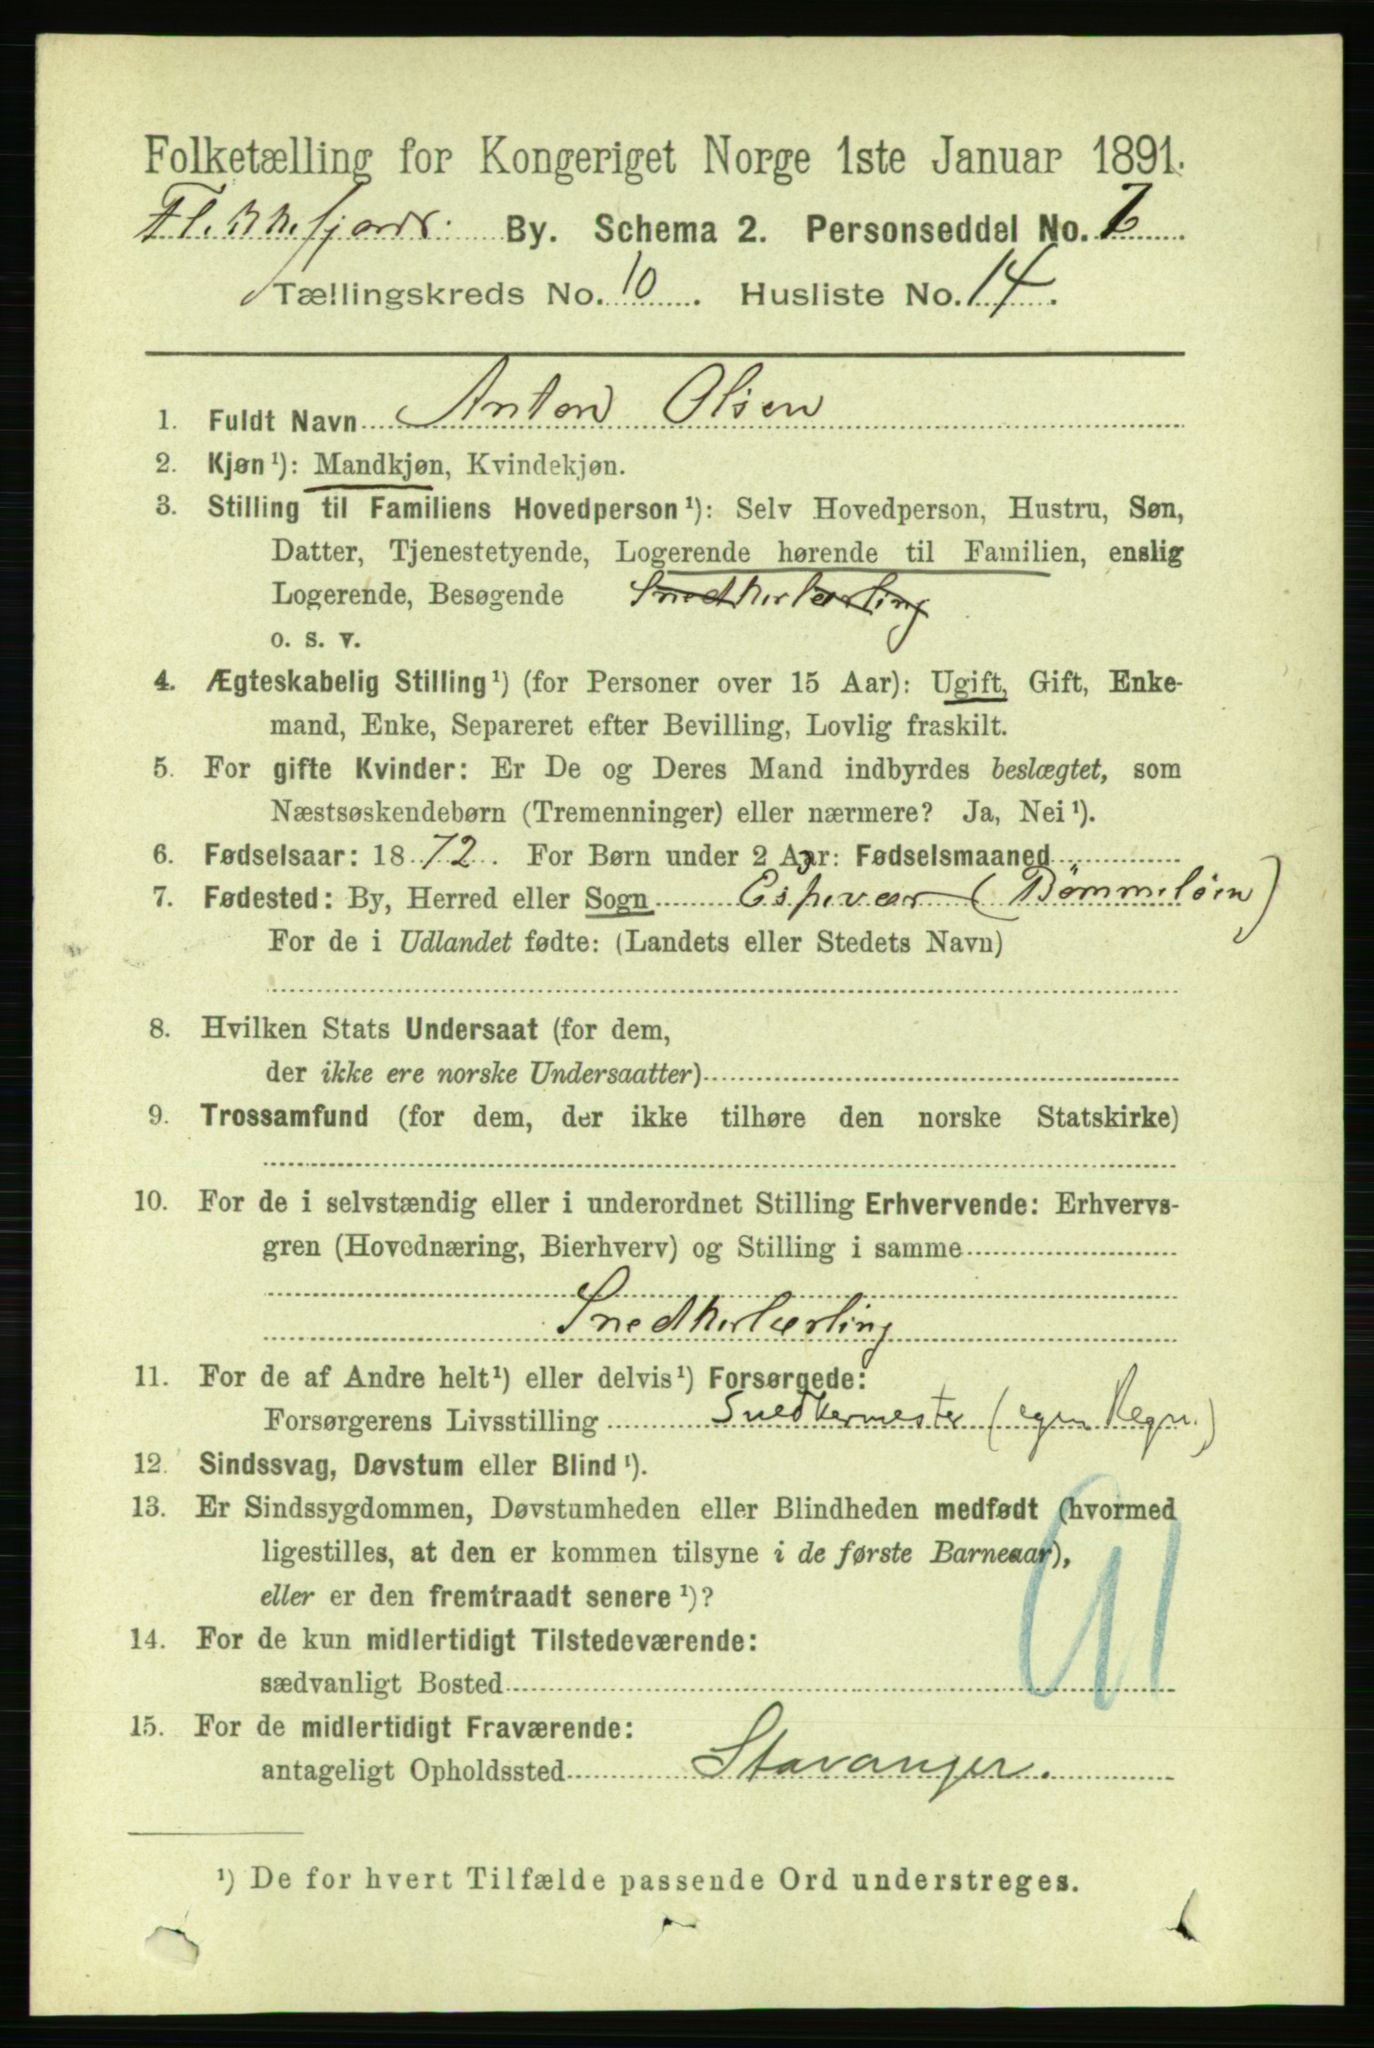 Folketælling for Kongeriget Norge 1ste Januar 1891.
Flekkefjords By. Schema 2. Personseddel No. 7
Tællingskreds No. 10. Husliste No. 14.
1. Fuldt Navn Anton Olsen
2. Kjøn¹): Mandkjøn, Kvindekjøn.
3. Stilling til Familiens Hovedperson¹): Selv Hovedperson, Hustru, Søn,
Datter, Tjenestetyende, Logerende hørende til Familien, enslig
Logerende, Besøgende Snedkerlærling
o. s. v.
4. Ægteskabelig Stilling¹) (for Personer over 15 Aar): Ugift, Gift, Enke-
mand, Enke, Separeret efter Bevilling, Lovlig fraskilt.
5. For gifte Kvinder: Er De og Deres Mand indbyrdes beslægtet, som
Næstsøskendebørn (Tremenninger) eller nærmere? Ja, Nei¹).
6. Fødselsaar: 1872. For Børn under 2 Aar: Fødselsmaaned
7. Fødested: By, Herred eller Sogn Espevær (Bömmeløen)
For de i Udlandet fødte: (Landets eller Stedets Navn)
8. Hvilken Stats Undersaat (for dem,
der ikke ere norske Undersaatter)
9. Trossamfund (for dem, der ikke tilhøre den norske Statskirke)
10. For de i selvstændig eller i underordnet Stilling Erhvervende: Erhvervs-
gren (Hovednæring, Bierhverv) og Stilling i samme
Snedkerlærling
11. For de af Andre helt¹) eller delvis¹) Forsørgede:
Forsørgerens Livsstilling Snedkermester (egen Regn.)
12. Sindssvag, Døvstum eller Blind¹).
13. Er Sindssygdommen, Døvstumheden eller Blindheden medfødt (hvormed
ligestilles, at den er kommen tilsyne i de første Barneaar),
eller er den fremtraadt senere¹)?
14. For de kun midlertidigt Tilstedeværende:
sædvanligt Bosted
15. For de midlertidigt Fraværende:
antageligt Opholdssted Stavanger.
¹) De for hvert Tilfælde passende Ord understreges.